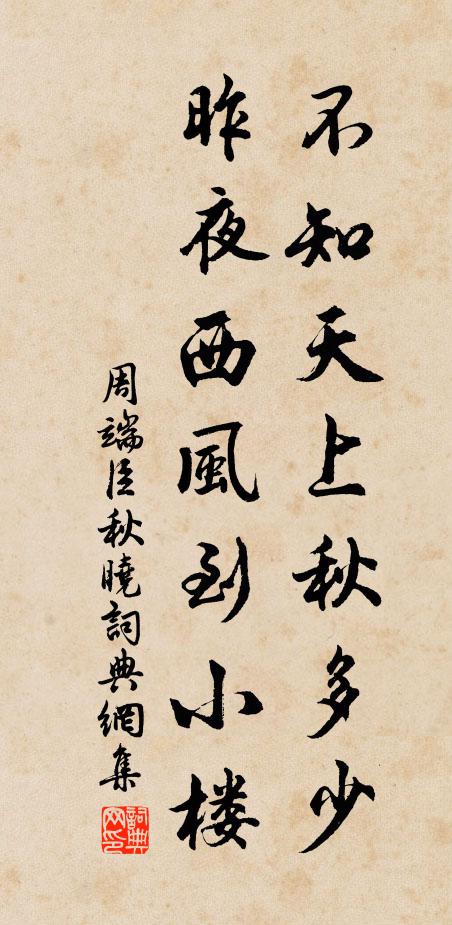 不知天上秋多少
昨夜西風到小楼
周端臣秋曉詞典網集
詞典网印